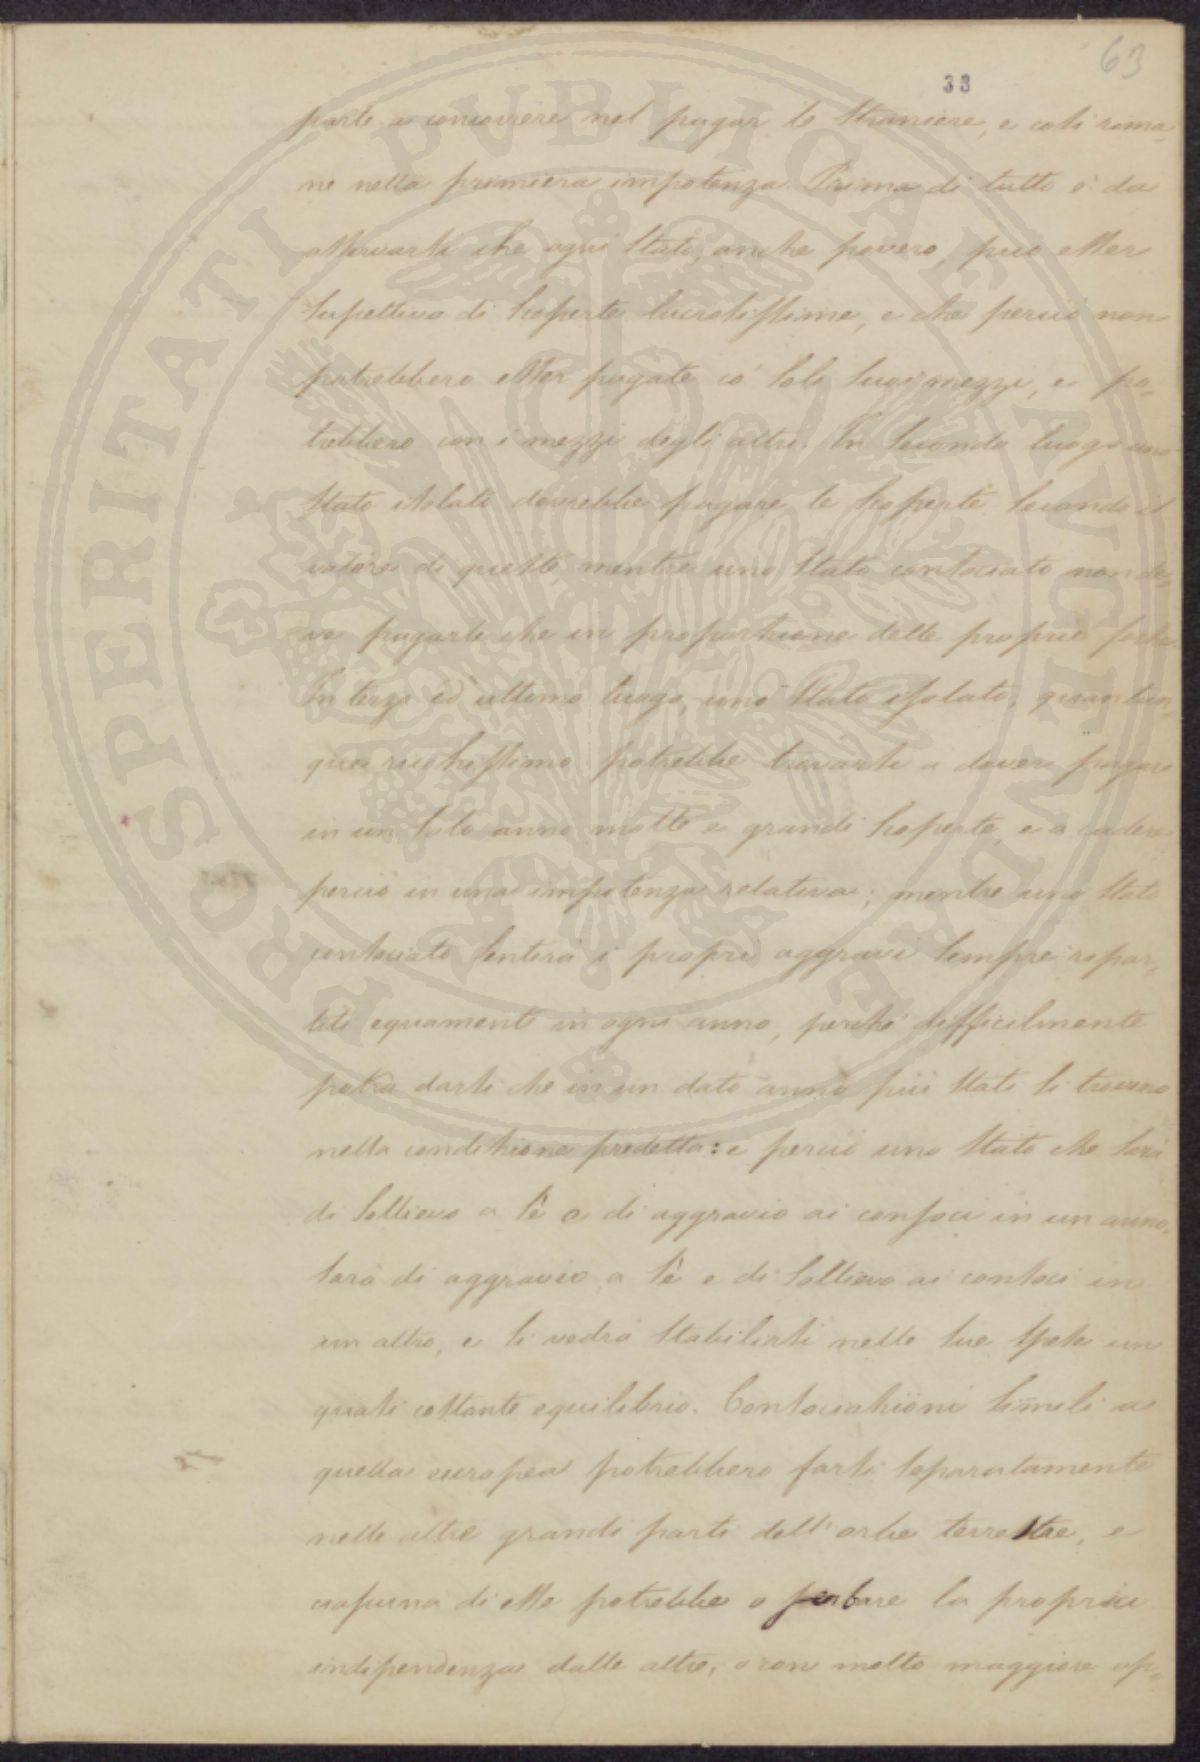 63
33
parte a concorrere nel pagar le straniere, e così rima-
ne nella primiera impotenza. Prima di tutto è da
osservarsi che ogni Stato, anche povero, può esser
suscettivo di scoperte lucrosissime, e che perciò non
potrebbero esser pagate co' soli suoi mezzi, e po-
trebbero con i mezzi degli altri. In secondo luogo uno
Stato isolato dovrebbe pagare le scoperte secondo il
valore di queste, mentre uno Stato consociato non de-
ve pagarle che in proporzione delle proprie forze.
In terzo ed ultimo luogo, uno Stato isolato, quantun-
que ricchissimo potrebbe trovarsi a dover pagare
in un solo anno molte e grandi scoperte, e a cadere
perciò in una impotenza relativa; mentre uno Stato
consociato sentirà i propri aggravi sempre ripar-
titi equamente in ogni anno, perchè difficilmente
potrà darsi che in un dato anno più Stati si trovino
nella condizione predetta: e perciò uno Stato che sarà
di sollievo a sè e di aggravio ai consoci in un anno,
sarà di aggravio a sè e di sollievo ai consoci in
un altro, e si vedrà stabilirsi nelle sue spese un
quasi costante equilibrio. Consociazioni simili a
quella europea potrebbero farsi separatamente
nelle altre grandi parti dell'orbe terrestre, e
ciascuna di esse potrebbe o serbare la propria
indipendenza dalle altre, o con molto maggiore op-
PROSPERITATI PVBLICAE AVGENDAE